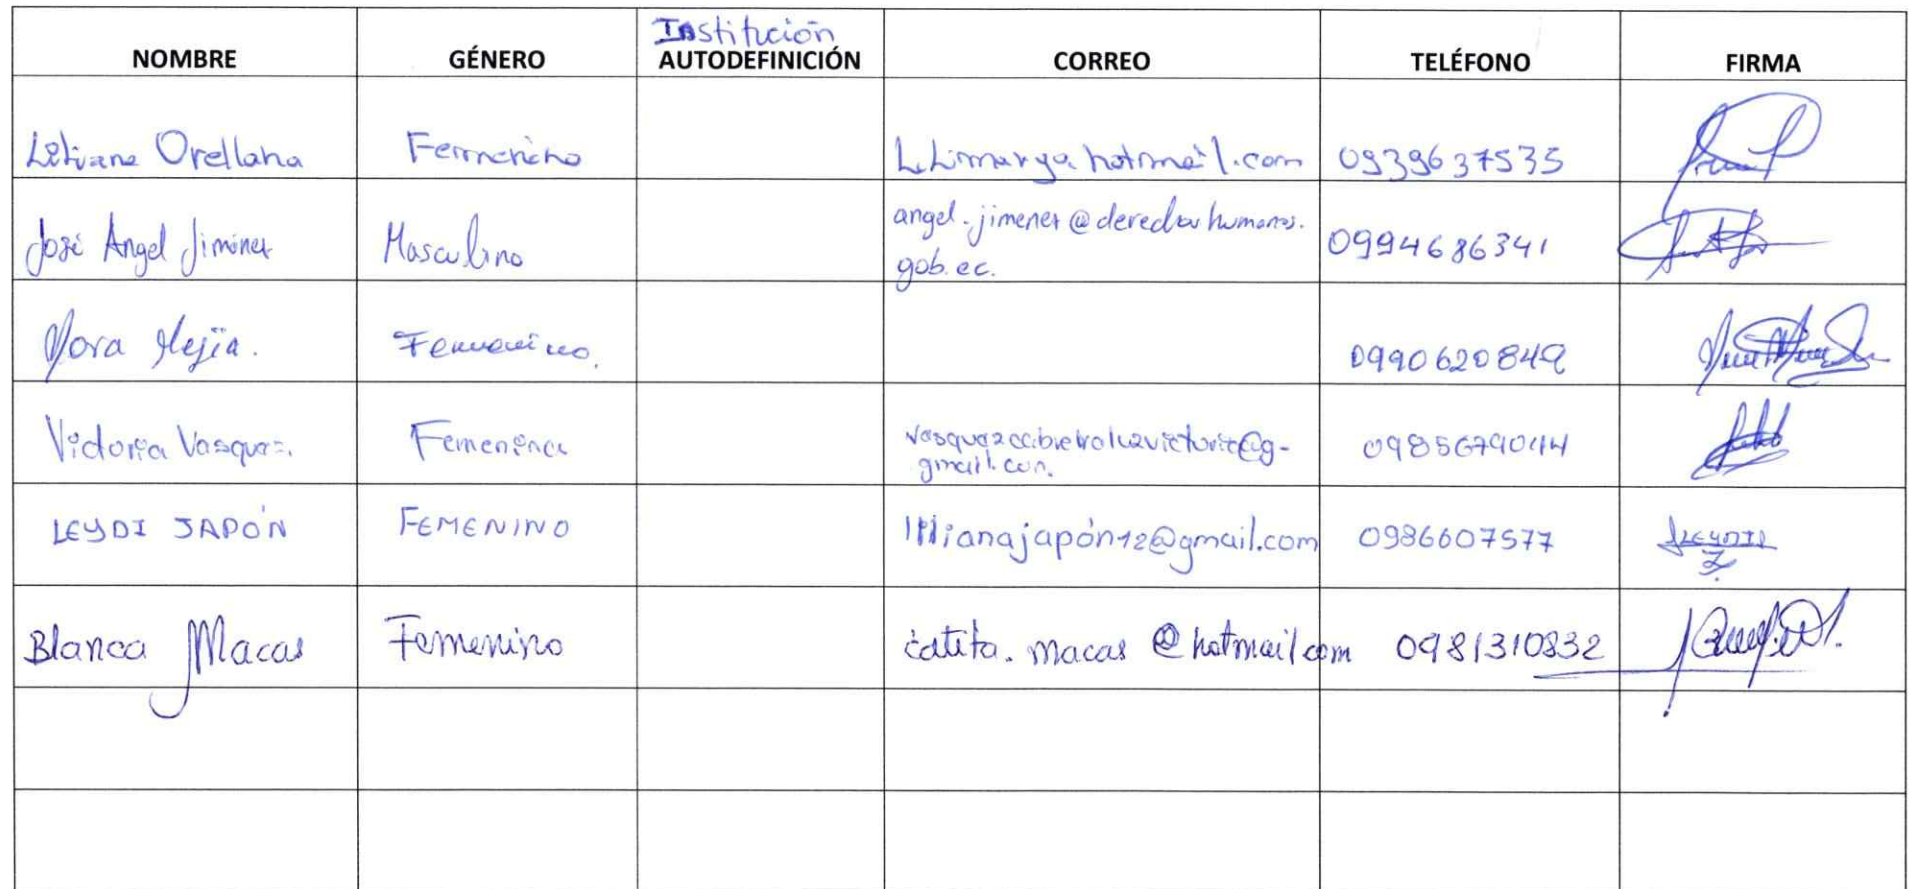 Institución
NOMBRE GÉNERO AUTODEFINICIÓN CORREO TELÉFONO FIRMA
Liliana Orellana Femenino hotmail.com 0939637535
José Angel Jiménez Masculino angel.jimenez@derechoshumanos.
gob.ec. 0994686341
Nora Mejía. Femenino. 0990620849
Victoria Vasquez. Femenina
gmail.com.
LEYDI JAPÓN FEMENINO lilianajapón12@gmail.com 0986607577
Blanca Macas Femenino catita.macas@hotmail.com 0981310832